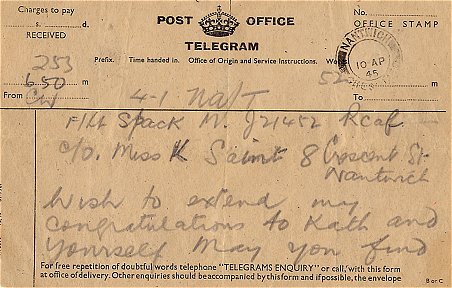 Charges to pay
s. d.
RECEIVED
POST OFFICE
TELEGRAM
No.
OFFICE STAMP
NANTWICH
10 AP
45
Prefix. Time handed in. Office of Origin and Service Instructions.
253
650
52
From
m
To
m
4-1 Na/T
F/Lt Spack M. J21452 Rcaf
c/o. Miss K Saint 8 Crescent St.
Nantwich
Wish to extend my
congratulations to Kath and
Yourself May you find
For free repetition of doubtful words telephone "TELEGRAMS ENQUIRY" or call, with this form
at office of delivery. Other enquiries should be accompanied by this form and if possible, the envelope
B or C